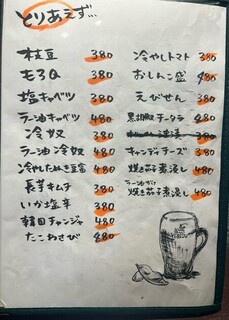 とりあえず…
枝豆 380
もろQ 380
塩キャベツ 380
ラー油キャベツ 480
冷奴 380
ラー油冷奴 480
冷やしたぬき豆富 480
長芋キムチ 380
いか塩辛 380
韓国チャンジャ 480
たこわさび 480
冷やしトマト 380
おしんこ盛 480
えびせん 380
黒胡椒チータラ 480
380
キャンディチーズ 380
焼き茄子煮浸し 480
ラー油がけ
焼き茄子煮浸し 480